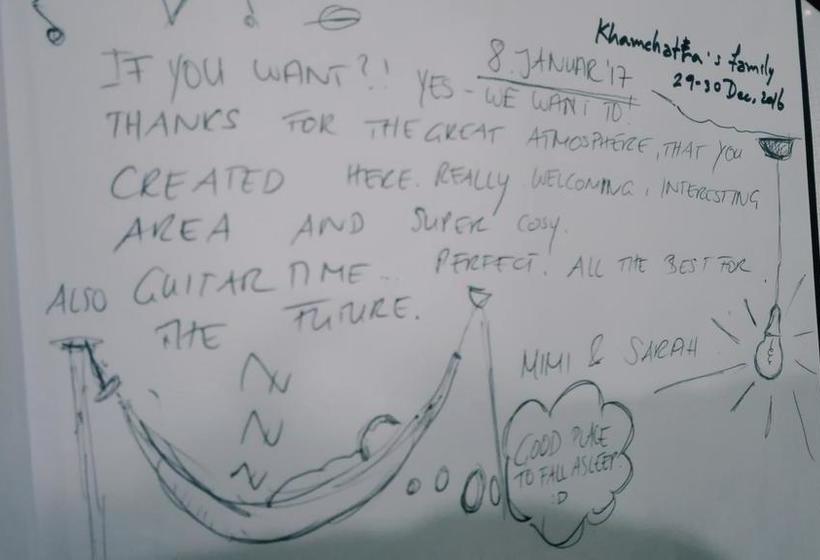 Khamchattra's family
29-30 Dec, 2016
8. JANUAR '17
IF YOU WANT?! YES - WE WANT TO!
THANKS FOR THE GREAT ATMOSPHERE, THAT YOU
CREATED HERE. REALLY WELCOMING, INTERESTING
AREA AND SUPER COSY.
ALSO GUITAR TIME... PERFECT! ALL THE BEST FOR
THE FUTURE.
MIMI & SARAH
GOOD PLACE
TO FALL ASLEEP!
:D